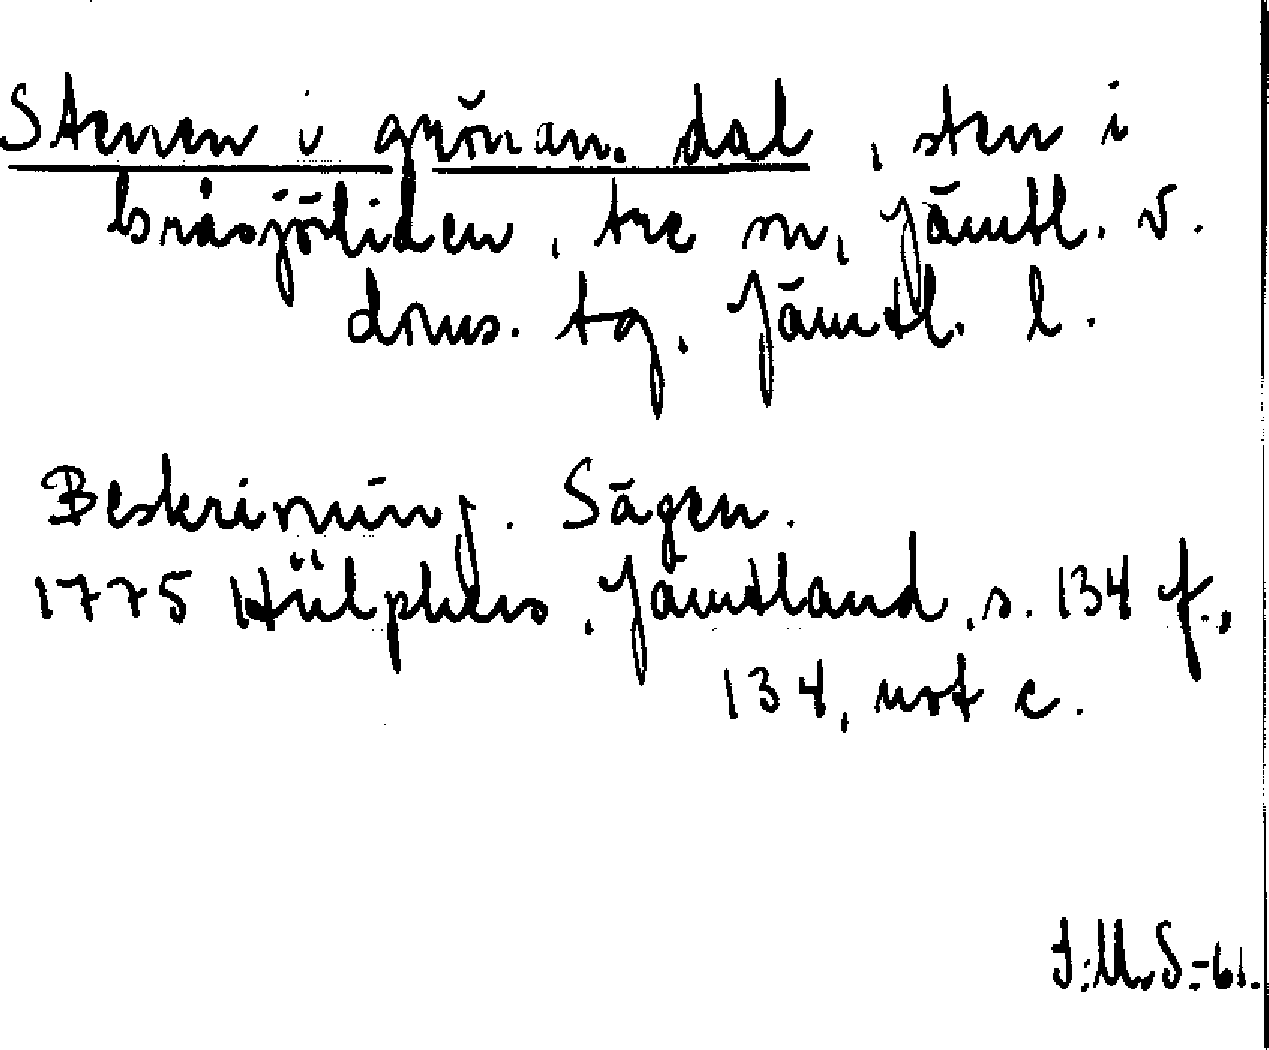 Stenen i grönan dal, sten i
bråsjöliden, åre sn, Jämtl. v.
doms. tg. Jämtl. l.
Beskrivning. Sägen.
1775 Hülphers, Jämtland, s. 134 f.,
134, not c.
I.M.S.-61.